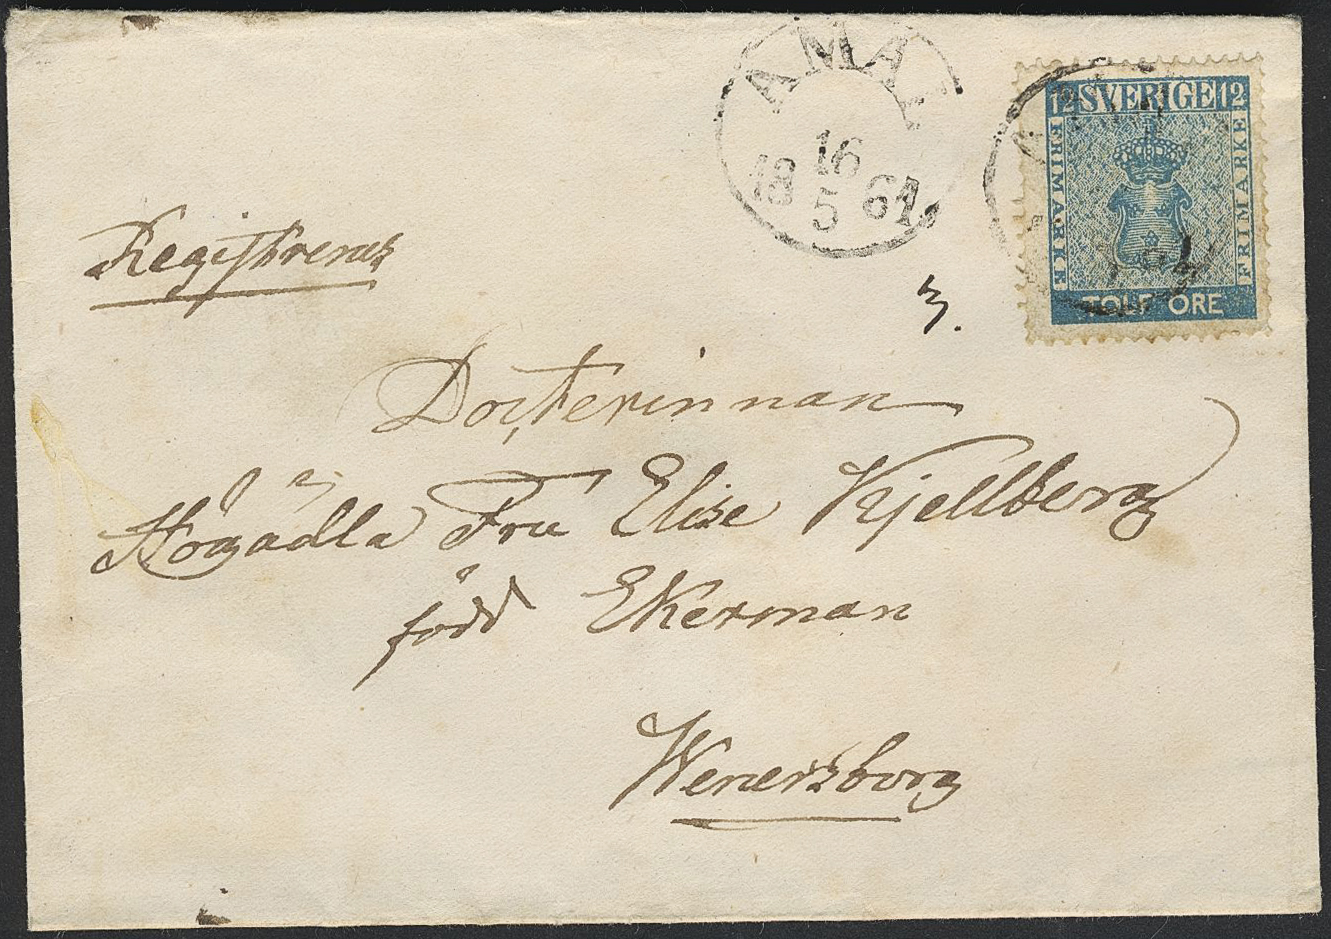 ÅMÅL
16
18 61
5
12 SVERIGE 12
FRIMÄRKE
FRIMÄRKE
TOLF ÖRE
Registreras
3.
Docterinnan
Högädla Fru Elise Kjellberg
född Ekerman
Wenersborg